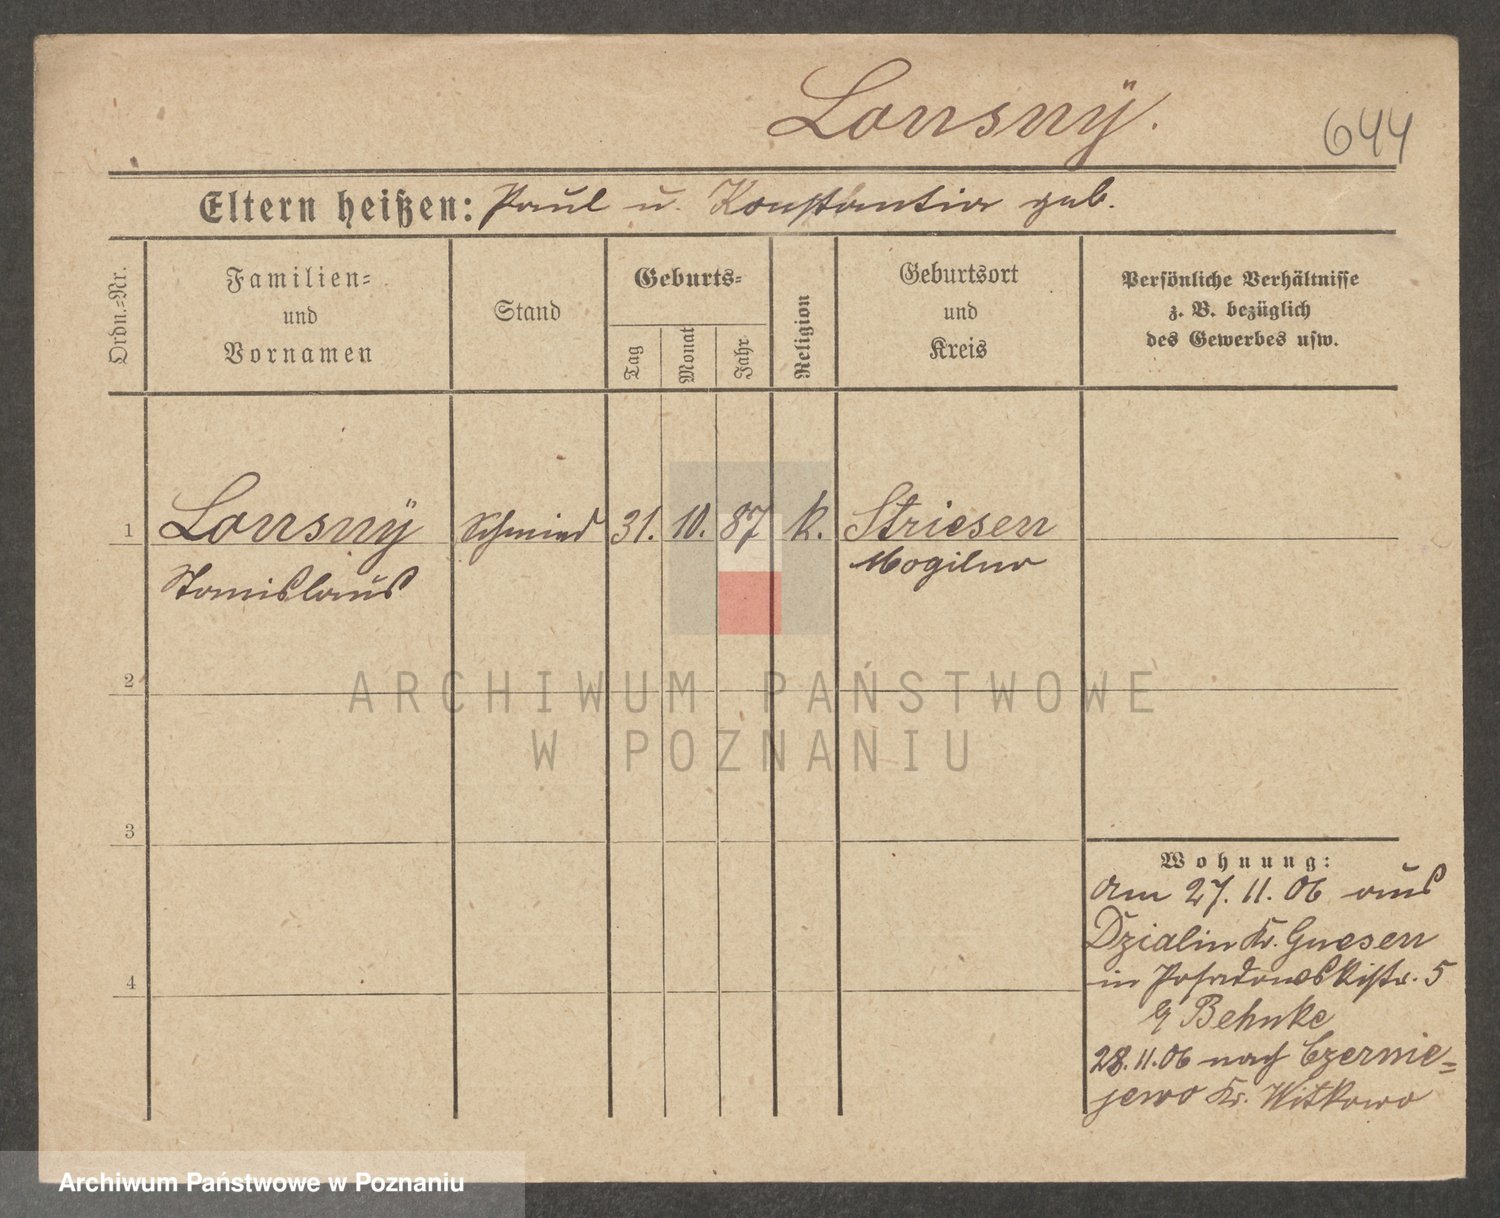 Lonsnÿ.
644
Eltern heißen: Paul u. Konstantia geb.
Ordn.=Nr.
Familien=
und
Vornamen
Stand
Geburts=
Tag
Monat
Jahr
Religion
Geburtsort
und
Kreis
Persönliche Verhältnisse
z. B. bezüglich
des Gewerbes usw.
1 Lonsnÿ Schmied 31. 10. 87 k. Striesen
Stanislaus Mogilno
2
ARCHIWUM PAŃSTWOWE
W POZNANIU
3
Wohnung:
am 27. 11. 06 aus
Dzialin Kr. Gnesen
in Posadowskistr. 5
b/ Behnke
28. 11. 06 nach Czernie=
jewo Kr. Witkowo
4
Archiwum Państwowe w Poznaniu